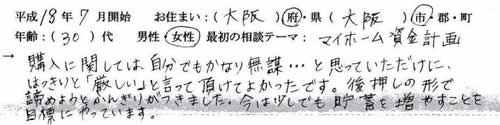 平成18年7月開始 お住まい:(大阪)府・県(大阪)市・郡・町
年齢:(30)代 男性・女性 最初の相談テーマ:マイホーム資金計画
→ 購入に関しては、自分でもかなり無謀…と思っていただけに、
はっきりと「厳しい」と言って頂けてよかったです。後押しの形で
諦めようとふんぎりがつきました。今は少しでも貯蓄を増やすことを
目標にやっています。